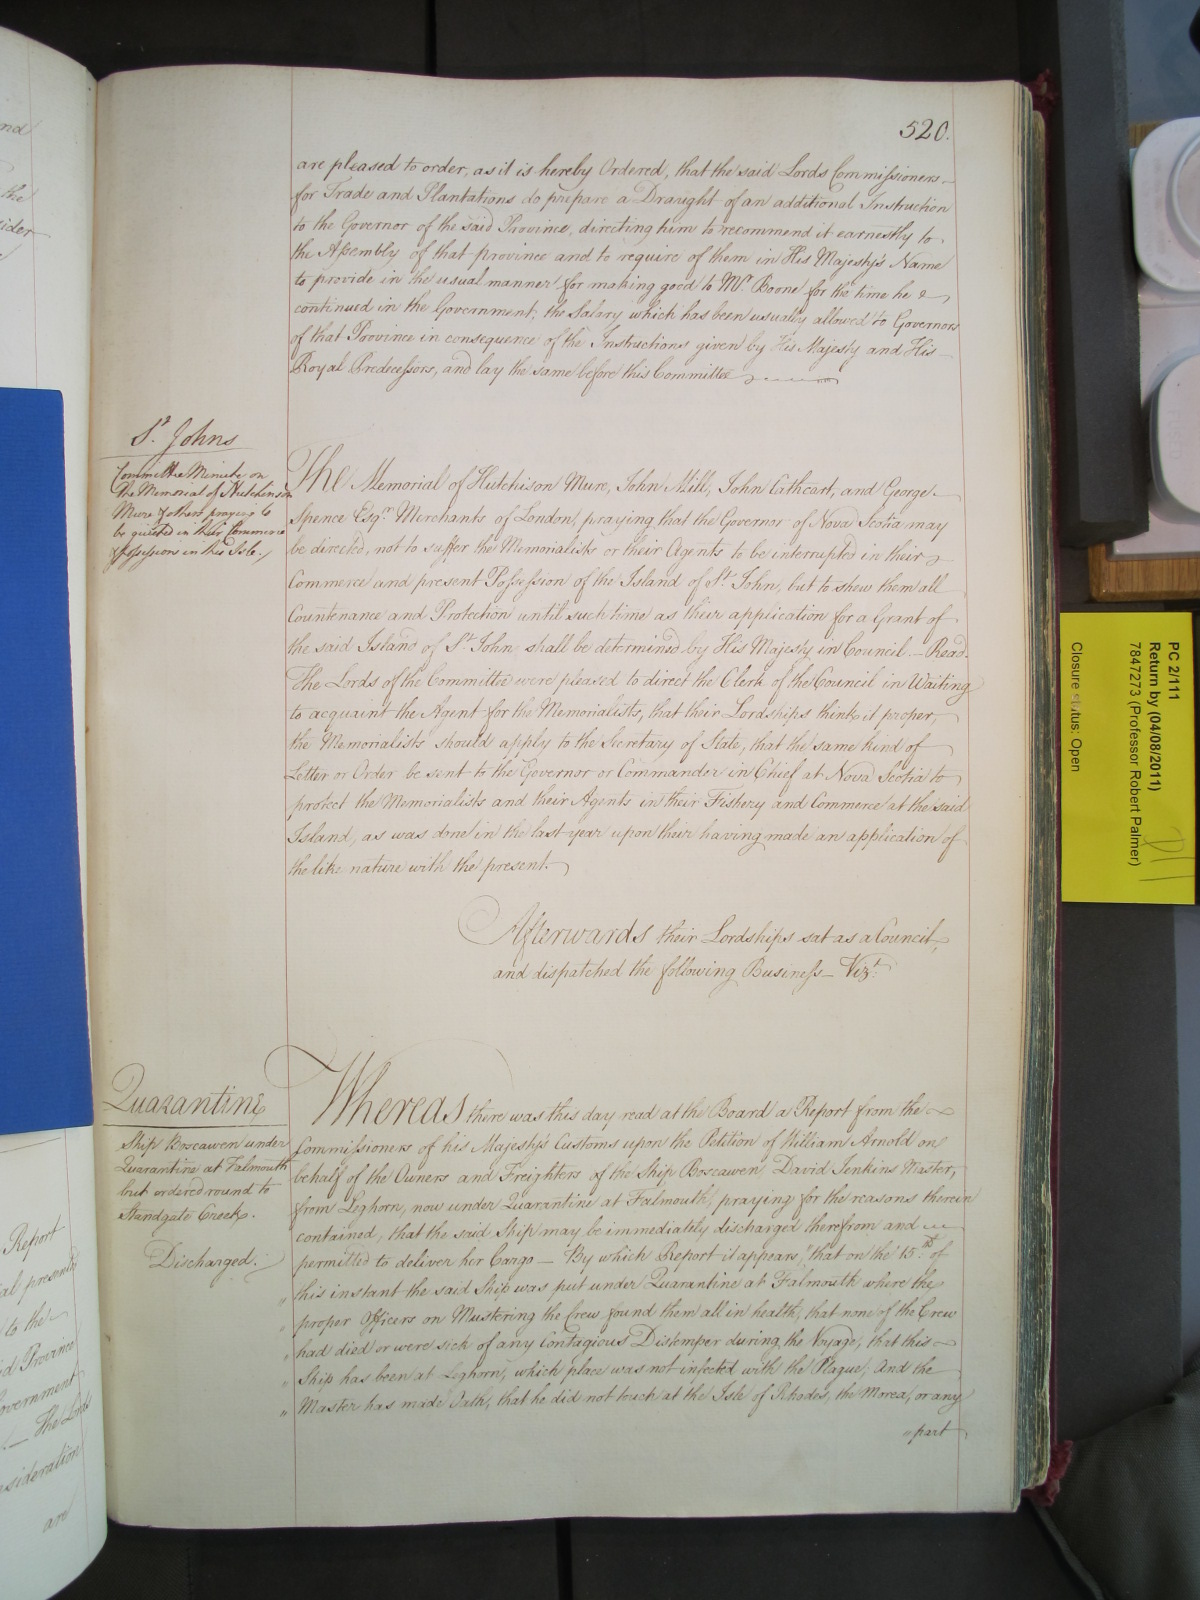 520.
are pleased to order, as it is hereby Ordered, that the said Lords Commissioners
for Trade and Plantations do prepare a Draught of an additional Instruction
to the Governor of the said Province, directing him to recommend it earnestly to
the Assembly of that province and to require of them in His Majesty's Name
to provide in the usual manner for making good to Mr. Boone for the time he
continued in the Government, the Salary which has been usually allowed to Governors
of that Province in consequence of the Instructions given by His Majesty and His
Royal Predecessors, and lay the same before this Committee
St. Johns
Committee Minute on
the Memorial of Hutchinson
Mure & others praying to
be quieted in their Commerce
& possession in this Isle.
The Memorial of Hutchison Mure, John Mill, John Cathcart, and George
Spence Esqrs. Merchants of London, praying that the Governor of Nova Scotia may
be directed, not to suffer the Memorialists or their Agents to be interrupted in their
Commerce and present Possession of the Island of St. John, but to shew them all
Countenance and Protection until such time as their application for a Grant of
the said Island of St. John shall be determined by His Majesty in Council — Read.
The Lords of the Committee were pleased to direct the Clerk of the Council in Waiting
to acquaint the Agent for the Memorialists, that their Lordships think it proper,
the Memorialists should apply to the Secretary of State, that the same kind of
Letter or Order be sent to the Governor or Commander in Chief at Nova Scotia to
protect the Memorialists and their Agents in their Fishery and Commerce at the said
Island, as was done in the last year upon their having made an application of
the like nature with the present.
Afterwards their Lordships sat as a Council,
and dispatched the following Business — Vizt.
Quarantine
Ship Boscawen under
Quarantine at Falmouth
but ordered round to
Standgate Creek.
Discharged.
Whereas there was this day read at the Board a Report from the
Commissioners of his Majesty's Customs upon the Petition of William Arnold on
behalf of the Owners and Freighters of the Ship Boscawen, David Jenkins Master,
from Leghorn, now under Quarantine at Falmouth, praying for the reasons therein
contained, that the said Ship may be immediately discharged therefrom and
permitted to deliver her Cargo — By which Report it appears, "that on the 15th. of
" this instant the said Ship was put under Quarantine at Falmouth where the
" proper Officers on Mustering the Crew found them all in health, that none of the Crew
" had died or were sick of any Contagious Distemper during the Voyage, that this
" Ship has been at Leghorn, which place was not infected with the Plague, And the
" Master has made Oath, that he did not touch at the Isle of Rhodes, the Morea, or any
" part
PC 2/111
Return by (04/08/2011)
7847273 (Professor Robert Palmer)
Closure status: Open
the
Report
to the
Province
Government
The Lords
consideration
are